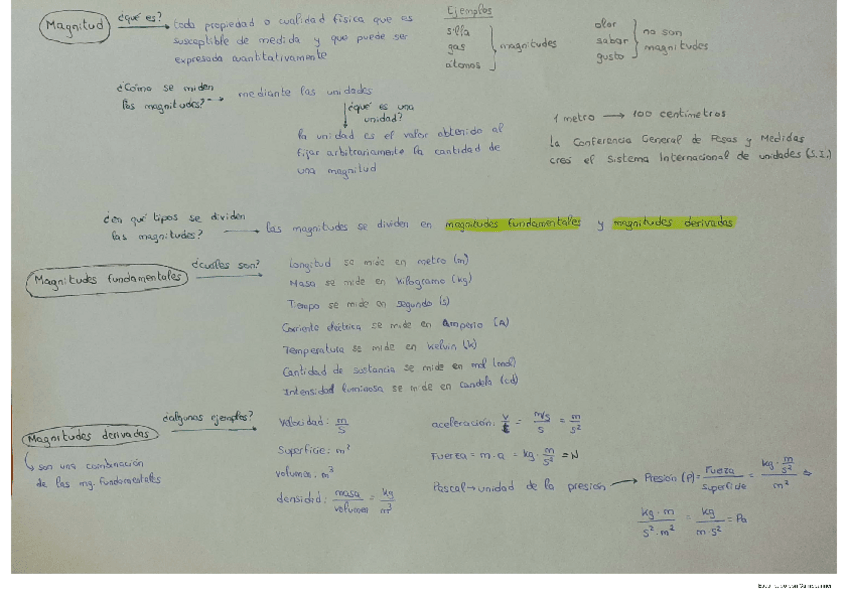 Magnitud
¿qué es?
toda propiedad o cualidad física que es
susceptible de medida y que puede ser
expresada cuantitativamente
Ejemplos
silla
gas
átomos
magnitudes
olor
sabor
gusto
no son
magnitudes
¿Cómo se miden
las magnitudes?
mediante las unidades
¿qué es una
unidad?
la unidad es el valor obtenido al
fijar arbitrariamente la cantidad de
una magnitud
1 metro → 100 centímetros
La Conferencia General de Pesas y Medidas
creó el Sistema Internacional de unidades (S.I.)
¿en qué tipos se dividen
las magnitudes?
las magnitudes se dividen en magnitudes fundamentales y magnitudes derivadas
Magnitudes fundamentales
¿cuáles son?
Longitud se mide en metro (m)
Masa se mide en kilogramo (kg)
Tiempo se mide en segundo (s)
Corriente eléctrica se mide en Amperio (A)
Temperatura se mide en Kelvin (K)
Cantidad de sustancia se mide en mol (mol)
Intensidad luminosa se mide en candela (cd)
Magnitudes derivadas
↳ son una combinación
de las mg. fundamentales
¿algunos ejemplos?
Velocidad: m/s
Superficie: m²
volumen: m³
densidad: masa/volumen = kg/m³
aceleración: v/t = m/s/s = m/s²
Fuerza = m·a = kg · m/s² = N
Pascal → unidad de la presión → Presión (P) = Fuerza/superficie = kg · m/s² / m² ⇒
kg·m/s²·m² = kg/m·s² = Pa